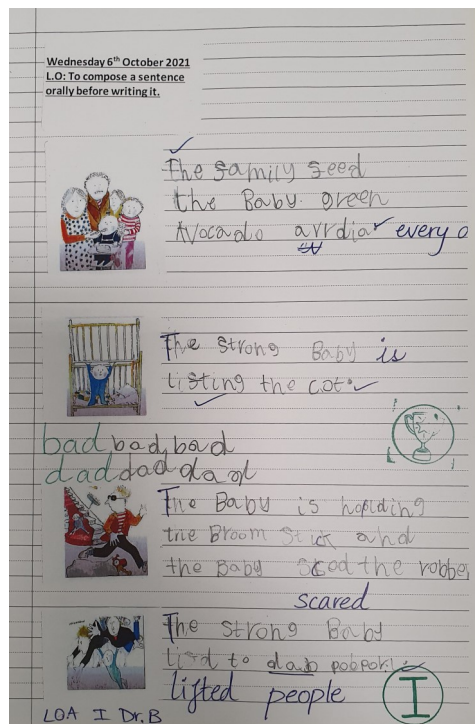 Wednesday 6th October 2021
L.O: To compose a sentence
orally before writing it.
The family feed
the Baby green
Avocado arrdia every d
The strong Baby is
lifting the cot.
bad bad bad
dad dad dad
The Baby is holding
the Broom Stick and
the Baby sced the robber
scared
The strong Baby
lifted people
I
LOA I Dr.B